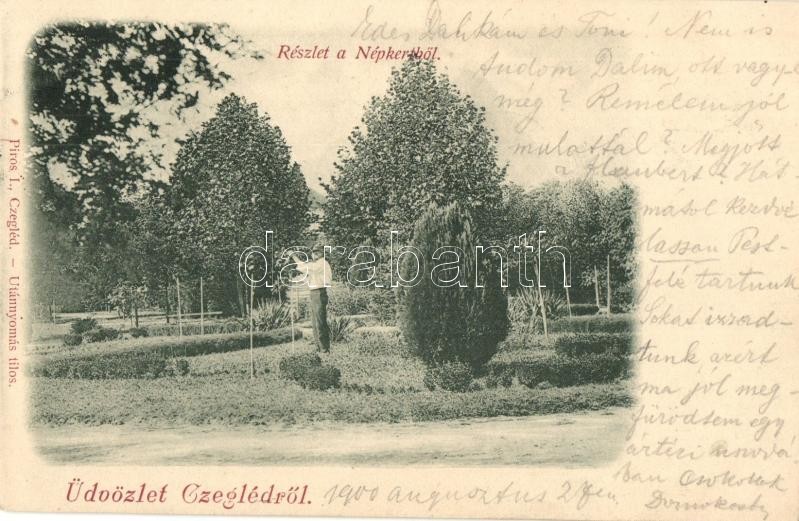 Édes Dahkám és Toni! Nem is
tudom Dalim, ott vagy-e
Részlet a Népkertből.
még? Remélem jól
mulattál? Megjött
a Hát-
mától kezdve
lassan Pest-
felé tartunk
Sokat izzad-
tunk azért
ma jól meg-
fürödtem egy
ártézi
ban Csókollak
darabanth
Piros I., Czegléd. — Utánnyomás tilos.
Üdvözlet Czeglédről.
1900 augusztus